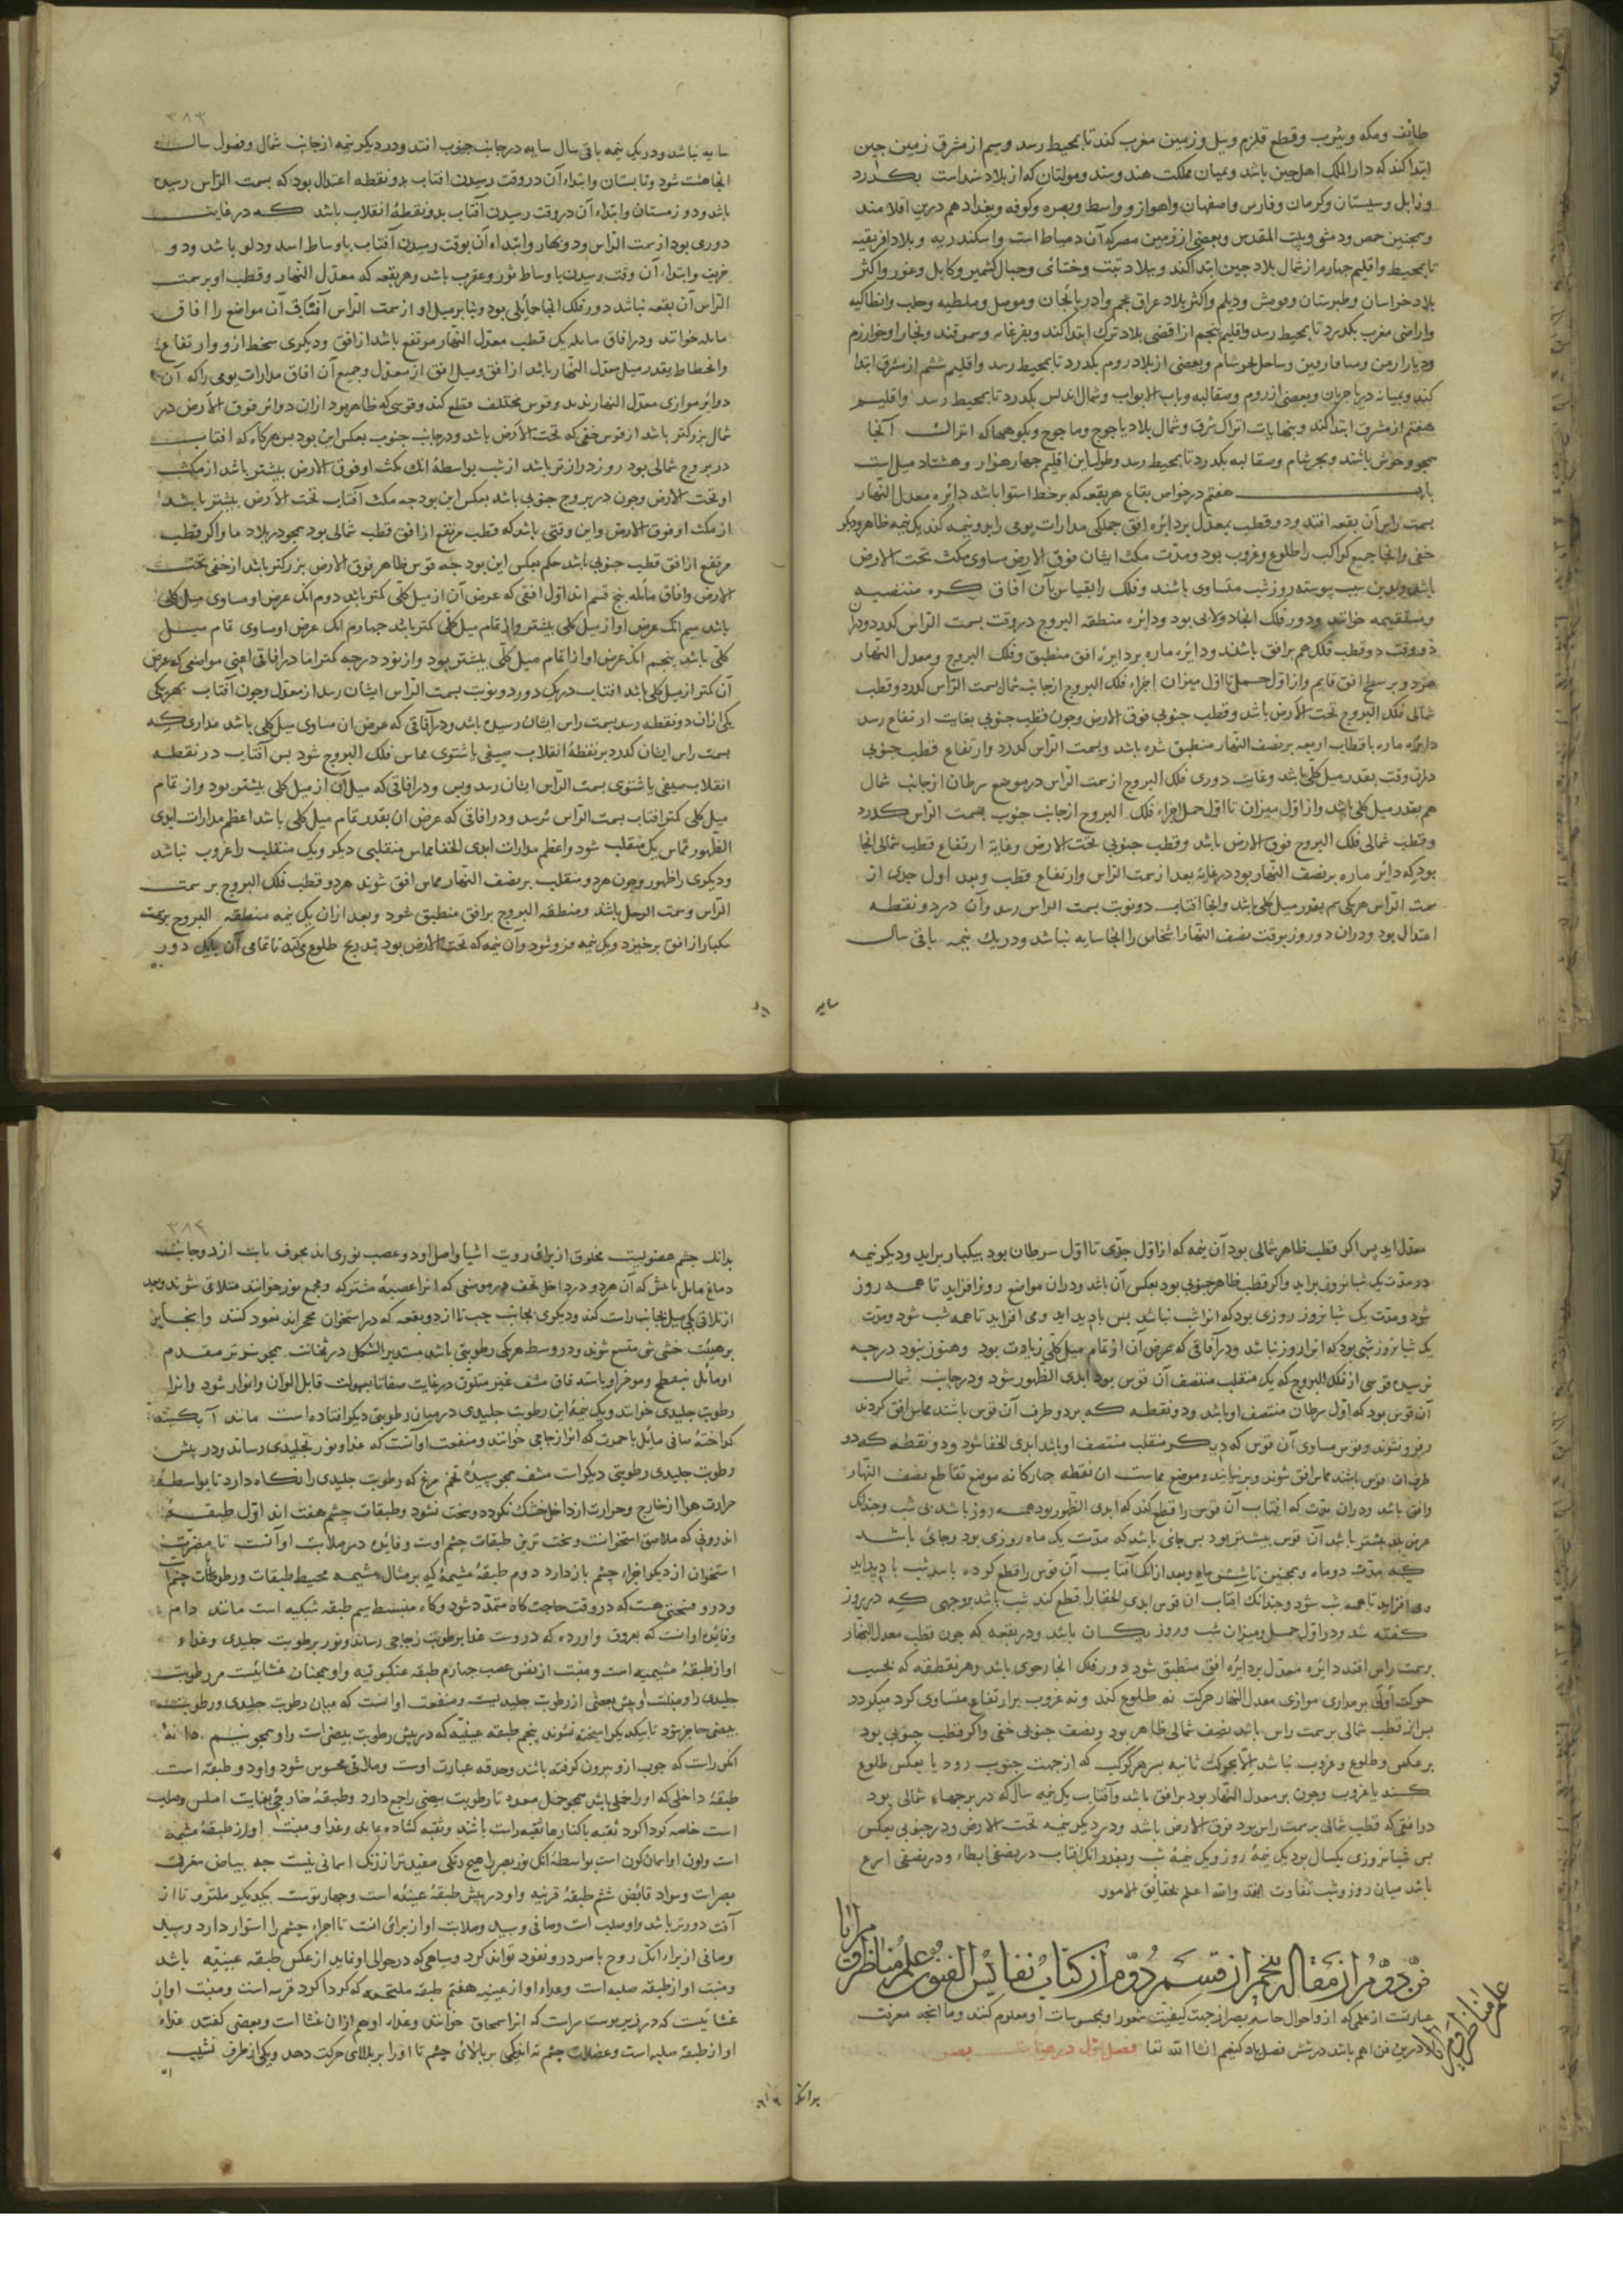 طایف ومکه ویثرب وقطع قلزم ونیل وزمین مغرب کند تا بمحیط رسد وسیم از مشرق زمین چین
ابتدا کند که دار الملک اهل چین باشد وبمیان مملکت هند وسند ومولتان که از بلاد سند است بگذرد
وزابل وسیستان وکرمان وفارس واصفهان واهواز وواسط وبصره وکوفه وبغداد هم درین اقلامند
وهمچنین حمص ودمشق وبیت المقدس وبعضی از زمین مصر که آن دمیاط است واسکندریه وبلاد افریقیه
تا بمحیط واقلیم چهارم از شمال بلاد چین ابتدا کند وببلاد تبت وختای وجبال کشمیر وکابل وغور واکثر
بلاد خراسان وطبرستان وقومش ودیلم واکثر بلاد عراق عجم وادربایجان وموصل وملطیه وحلب وانطاکیه
واراضی مغرب بگذرد تا بمحیط رسد واقلیم پنجم از اقصی بلاد ترک ابتدا کند وبفرغانه وسمرقند وبخارا وخوارزم
ودیار ارمن ومیافارقین وساحل بحر شام وبعضی از بلاد روم بگذرد تا بمحیط رسد واقلیم ششم از مشرق ابتدا
کند وبمیانه دریا جرجان وبعضی از روم وصقالبه وباب الابواب وشمال اندلس بگذرد تا بمحیط رسد واقلیم
هفتم از مشرق ابتدا کند وبنهایات اتراک شرق وشمال بلاد یاجوج وماجوج وبکوهها که اتراک آنجا
همچو وحوش باشند وبحر شام وصقالبه بگذرد تا بمحیط رسد وطول این اقلیم چهار هزار وهشتاد میل است
باب هفتم در خواص بقاع هر بقعه که بر خط استوا باشد دائره معدل النهار
بسمت راس آن بقعه افتد ودو قطب معدل بر دائره افق جملگی مدارات یومی را بدو نیمه کند یک نیمه ظاهر ودیگر
خفی وانجا جمیع کواکب را طلوع وغروب بود ومدت مکث ایشان فوق الارض مساوی مکث تحت الارض
باشد وبدین سبب پیوسته روز شب متساوی باشند وفلک را بقیاس بآن آفاق کره منتصبه
ومستقیمه خوانند ودور فلک انجا دولابی بود ودائره منطقه البروج در وقت بسمت الراس گذرد ودران
دو وقت دو قطب فلک هم بر افق باشند ودائره ماره بر دایره افق منطبق وفلک البروج ومعدل النهار
هر دو بر سطح افق قایم واز اول حمل تا اول میزان اجزاء فلک البروج از جانب شمال سمت الراس گذرد وقطب
شمالی فلک البروج تحت الارض باشد وقطب جنوبی فوق الارض وچون قطب جنوبی بغایت ارتفاع رسد
دایره ماره باقطاب اربعه بر نصف النهار منطبق شده باشد وبسمت الراس گذرد وارتفاع قطب جنوبی
دران وقت بقدر میل کلی باشد وغایت دوری فلک البروج از سمت الراس در موضع سرطان از جانب شمال
هم بقدر میل کلی باشد واز اول میزان تا اول حمل اجزاء فلک البروج از جانب جنوب بسمت الراس گذرد
وقطب شمالی فلک البروج فوق الارض باشد وقطب جنوبی تحت الارض وغایة ارتفاع قطب شمالی انجا
بود که دائر ماره بر نصف النهار بود در غایة بعد از سمت الراس وارتفاع قطب وبعد اول جدی از
سمت الراس هر یکی هم بقدر میل کلی باشد وانجا افتاب دو نوبت بسمت الراس رسد وآن در دو نقطه
اعتدال بود ودران دو روز بوقت نصف النهار اشخاص را انجا سایه نباشد ودر یک نیمه باقی سال
سایه
۳۸۳
سایه نباشد ودر یک نیمه باقی سال سایه در جانب جنوب افتد ودر دیگر نیمه از جانب شمال وفصول سال
انجا هشت شود وتابستان وابتداء آن در وقت رسیدن افتاب بدو نقطه اعتدال بود که بسمت الراس رسیده
باشد ودو زمستان وابتداء آن در وقت رسیدن آفتاب بدو نقطهٔ انقلاب باشد که در غایت
دوری بود از سمت الراس ودو بهار وابتداء آن بوقت رسیدن آفتاب باوساط اسد ودلو باشد ودو
خریف وابتداء آن وقت رسیدن باوساط ثور وعقرب باشد وهر بقعه که معدل النهار وقطب او بر سمت
الراس آن بقعه نباشد دور فلک انجا حمایلی بود وبنابر میل او از سمت الراس آفتاب آن مواضع را افاق
مایله خوانند ودر افاق مایله یک قطب معدل النهار مرتفع باشد از افق ودیگری منحط ازو وارتفاع
وانحطاط بقدر میل معدل النهار باشد از افق ومیل افق از معدل وجمیع آن افاق مدارات یومی را که آن
دوائر موازی معدل النهارند بدو قوس مختلف قطع کند وقوسی که ظاهر بود ازان دوائر فوق الارض در
شمال بزرگتر باشد از قوس خفی که تحت الارض باشد ودر جانب جنوب بعکس این بود پس هرگاه که افتاب
در بروج شمالی بود روز درازتر باشد از شب بواسطهٔ انک مکث او فوق الارض بیشتر باشد از مکث
او تحت الارض وچون در بروج جنوبی باشد بعکس این بود چه مکث آفتاب تحت الارض بیشتر باشد
از مکث او فوق الارض واین وقتی باشد که قطب مرتفع از افق قطب شمالی بود همچو در بلاد ما واگر قطب
مرتفع از افق قطب جنوبی باشد حکم بعکس این بود چه قوس ظاهر فوق الارض بزرگتر باشد از خفی تحت
الارض وافاق مائله پنج قسم اند اول افقی که عرض آن از میل کلی کمتر باشد دوم انک عرض او مساوی میل کلی
باشد سیم انک عرض او از میل کلی بیشتر واز تمام میل کلی کمتر باشد چهارم انک عرض او مساوی تمام میل
کلی باشد پنجم انک عرض او از تمام میل کلی بیشتر بود واز نود درجه کمتر اما در افاقی اعنی مواضعی که عرض
آن کمتر از میل کلی باشد افتاب در یک دور دو نوبت بسمت الراس ایشان رسد از معدل وچون آفتاب بهر یکی
یکی ازان دو نقطه رسد بسمت راس ایشان رسیده باشد ودر آفاقی که عرض ان مساوی میل کلی باشد مداری که
بسمت راس ایشان گذرد بر نقطهٔ انقلاب صیفی یا شتوی مماس فلک البروج شود پس افتاب در نقطه
انقلاب صیفی یا شتوی بسمت الراس ایشان رسد وبس ودر افاقی که میل آن از میل کلی بیشتر بود واز تمام
میل کلی کمتر افتاب بسمت الراس نرسد ودر افاقی که عرض ان بقدر تمام میل کلی باشد اعظم مدارات ابدی
الظهور مماس یک منقلب شود واعظم مدارات ابدی الخفا مماس منقلبی دیگر ویک منقلب را غروب نباشد
ودیگری را ظهور وچون هر دو منقلب بر نصف النهار مماس افق شوند هر دو قطب فلک البروج بر سمت
الراس وسمت الرجل باشد ومنطقه البروج بر افق منطبق شود وبعد ازان یک نیمه منطقه البروج
یکبار از افق برخیزد ویک نیمه فرو شود وآن نیمه که تحت الارض بود بتدریج طلوع میکند تا تمامی آن بیک دور
معدل اید پس اگر قطب ظاهر شمالی بود آن نیمه که از اول جدی تا اول سرطان بود بیکبار براید ودیگر نیمه
در مدت یک شبانروز براید واگر قطب ظاهر جنوبی بود بعکس آن باشد ودران مواضع روز افزاید تا همه روز
شود ومدت یک شبانروز روزی بود که انرا شب نباشد پس شب بادید اید ومی افزاید تا همه شب شود ومدت
یک شبانروز شبی بود که انرا روز نباشد ودر آفاقی که عرض آن از تمام میل کلی زیادت بود وهنوز بنود درجه
نرسیده قوسی از فلک البروج که یک منقلب منتصف آن قوس بود ابدی الظهور شود ودر جانب شمال
آن قوس بود که اول سرطان منتصف او باشد ودو نقطه که بر دو طرف آن قوس باشند مماس افق گردند
وفرو نشوند وقوس مساوی آن قوس که دیگر منقلب منتصف او باشد ابدی الخفا شود ودو نقطه که دو
طرف ان قوس باشند مماس افق شوند وبر نیایند وموضع مماست ان نقطه چهارگانه موضع تقاطع نصف النهار
وافق باشد ودران مدت که افتاب آن قوس را قطع کند که ابدی الظهور بود همه روز باشد بی شب وچندانک
عرض بلد بیشتر باشد آن قوس بیشتر بود پس جائی باشد که مدت یک ماه روزی بود وجائی باشد
که مدت دو ماه وهمچنین تا شش ماه وبعد ازانک آفتاب آن قوس را قطع کرده باشد شب بادید اید
ومی افزاید تا همه شب شود وچندانک افتاب ان قوس ابدی الخفا را قطع کند شب باشد بوجهی که در روز
گفته شد ودر اول حمل ومیزان شب وروز یکسان باشد ودر بقعه که چون قطب معدل النهار
بر سمت راس افتد دائره معدل بر دایره افق منطبق شود دور فلک انجا رحوی باشد وهر نقطه که بحسب
حرکت اولی بر مداری موازی معدل النهار حرکت نه طلوع کند ونه غروب بر ارتفاع متساوی گرد میگردد
پس اگر قطب شمالی بر سمت راس باشد نصف شمالی ظاهر بود ونصف جنوبی خفی واگر قطب جنوبی بود
بر عکس وطلوع وغروب نباشد الا بحرکت ثانیه پس هر کوکب که از جهت جنوب رود یا بعکس طلوع
کند یا غروب وچون بر معدل النهار بود بر افق باشد وآفتاب یک نیمه سال که در برجهاء شمالی بود
در افقی که قطب شمالی بر سمت راس بود فوق الارض باشد ودر دیگر نیمه تحت الارض ودر جنوبی بعکس
پس شبانروزی یکسال بود یک نیمهٔ روز ویک نیمهٔ شب وبقدر انک افتاب در نصفی ابطاء ودر نصفی اسرع
باشد میان روز وشب تفاوت افتد والله اعلم بحقایق الامور
فن دوم از مقاله پنجم از قسم دوم از کتاب نفایس الفنون علم مناظر ومرایا
علم مناظر ومرایا
عبارتست از علمی که ازو احوال حاسه بصر از جهت کیفیت شعور او بمحسوسات او معلوم کنند وما انچه معرفت
درین فن اهم باشد در شش فصل یاد کنیم انشا الله تعا فصل اول در هیات بصر
بدانک
۳۸۴
بدانک چشم عضویست مخلوق از برای رویت اشیا واصل او دو عصب نوری اند مجوف نابت از دو جانب
دماغ مایل باعلی که آن هر دو در داخل قحف در موضعی که انرا عصبهٔ مشترکه ومجمع نور خوانند متلاقی شوند وبعد
از تلاقی یکی میل بجانب راست کند ودیگری بجانب چپ تا از دو بقعه که در استخوان محجراند نفوذ کنند وانجا
بر هیئت خشی شی متسع شوند ودر وسط هر یکی رطوبتی باشد مستدیر الشکل در ثخانت همچو شوتر مقدم
او مائل بتفطح ومؤخر او باستدقاق مشف غیر متلون در غایت صفا تا بسهولت قابل الوان وانوار شود وانرا
رطوبت جلیدی خوانند ویک نیمهٔ این رطوبت جلیدی در میان رطوبتی دیگر افتاده است مانند آبگینه
گداختهٔ صافی مایل باحمرت که انرا زجاجی خوانند ومنفعت او آنست که غذا ونور بجلیدی رساند ودر پیش
رطوبت جلیدی رطوبتی دیگر است مشف همچو سپیدهٔ تخم مرغ که رطوبت جلیدی را نگاه دارد تا بواسطهٔ
حرارت هوا از خارج وحرارت از داخل خشک نگردد وسخت نشود وطبقات چشم هفت اند اول طبقه
اندرونی که ملاصق استخوانست وسخت ترین طبقات چشم اوست وفایده در صلابت او آنست تا مضرت
استخوان از دیگر اجزاء چشم باز دارد دوم طبقهٔ مشیمهٔ که بر مثال مشیمه محیط طبقات ورطوبات چشم است
ودرو منحنی هست که در وقت حاجت گاه متمدد شود وگاه منبسط سیم طبقه شبکیه است مانند دام
وفایدهٔ او انست که بعروق واورده که دروست غذا برطوبت زجاجی رساند ونور برطوبت جلیدی وغذاء
او از طبقهٔ مشیمیه است ومنبت از نفس عصب چهارم طبقه عنکبوتیه واو همچنان غشائیست مر رطوبت
جلیدی را ومنبت او پیش بعضی از رطوبت جلیدیست ومنفعت او انست که میان رطوبت جلیدی ورطوبت
بیضی حاجز بود تا بیکدیگر امیخته نشوند پنجم طبقه عنبیه که در پیش رطوبت بیضی است واو همچو نیم دانهٔ
انگور است که چوب ازو بیرون گرفته باشند وحدقه عبارت اوست وملاقی محسوس شود واو دو طبقه است
طبقهٔ داخلی که او را خملی باشد همچو خمل معده تا رطوبت بیضی را جمع دارد وطبقهٔ خارجی بغایت املس وصلب
است خاصه گرداگرد ثقبه تا کنارها ثقبه راست باشند وثقبه گشاده بماند وغذا ومنبت او از طبقهٔ مشیمه
است ولون او اسمان گون است بواسطهٔ انک نور بصر را هیچ رنگی مفید تر از رنگ اسمانی نیست چه بیاض مفرق
بصر است وسواد قابض ششم طبقهٔ قرنیه واو در پیش طبقهٔ عنبیه است وچهار توست بیکدیگر ملتزم تا از
آفت دورتر باشد واو صلب است وصافی وسپید وصلابت او از برای انست تا اجزاء چشم را استوار دارد وسپید
وصافی از براء انک روح باصره درو نفوذ تواند کرد وسیاهی که در حوالی او نماید از عکس طبقه عنبیه باشد
ومنبت او از طبقه صلبه است وغذاء او از عنبیه هفتم طبقه ملتحمه که گرداگرد قرنیه است ومنبت او از
غشائیست که در زیر پوست سر است که انرا سمحاق خوانند وغذاء او هم ازان غشا است وبعضی گفتند غذاء
او از طبقه صلبه است وعضلات چشم نه اند یکی بر بالای چشم تا او را ببالای حرکت دهد ویکی از طرف نشیب